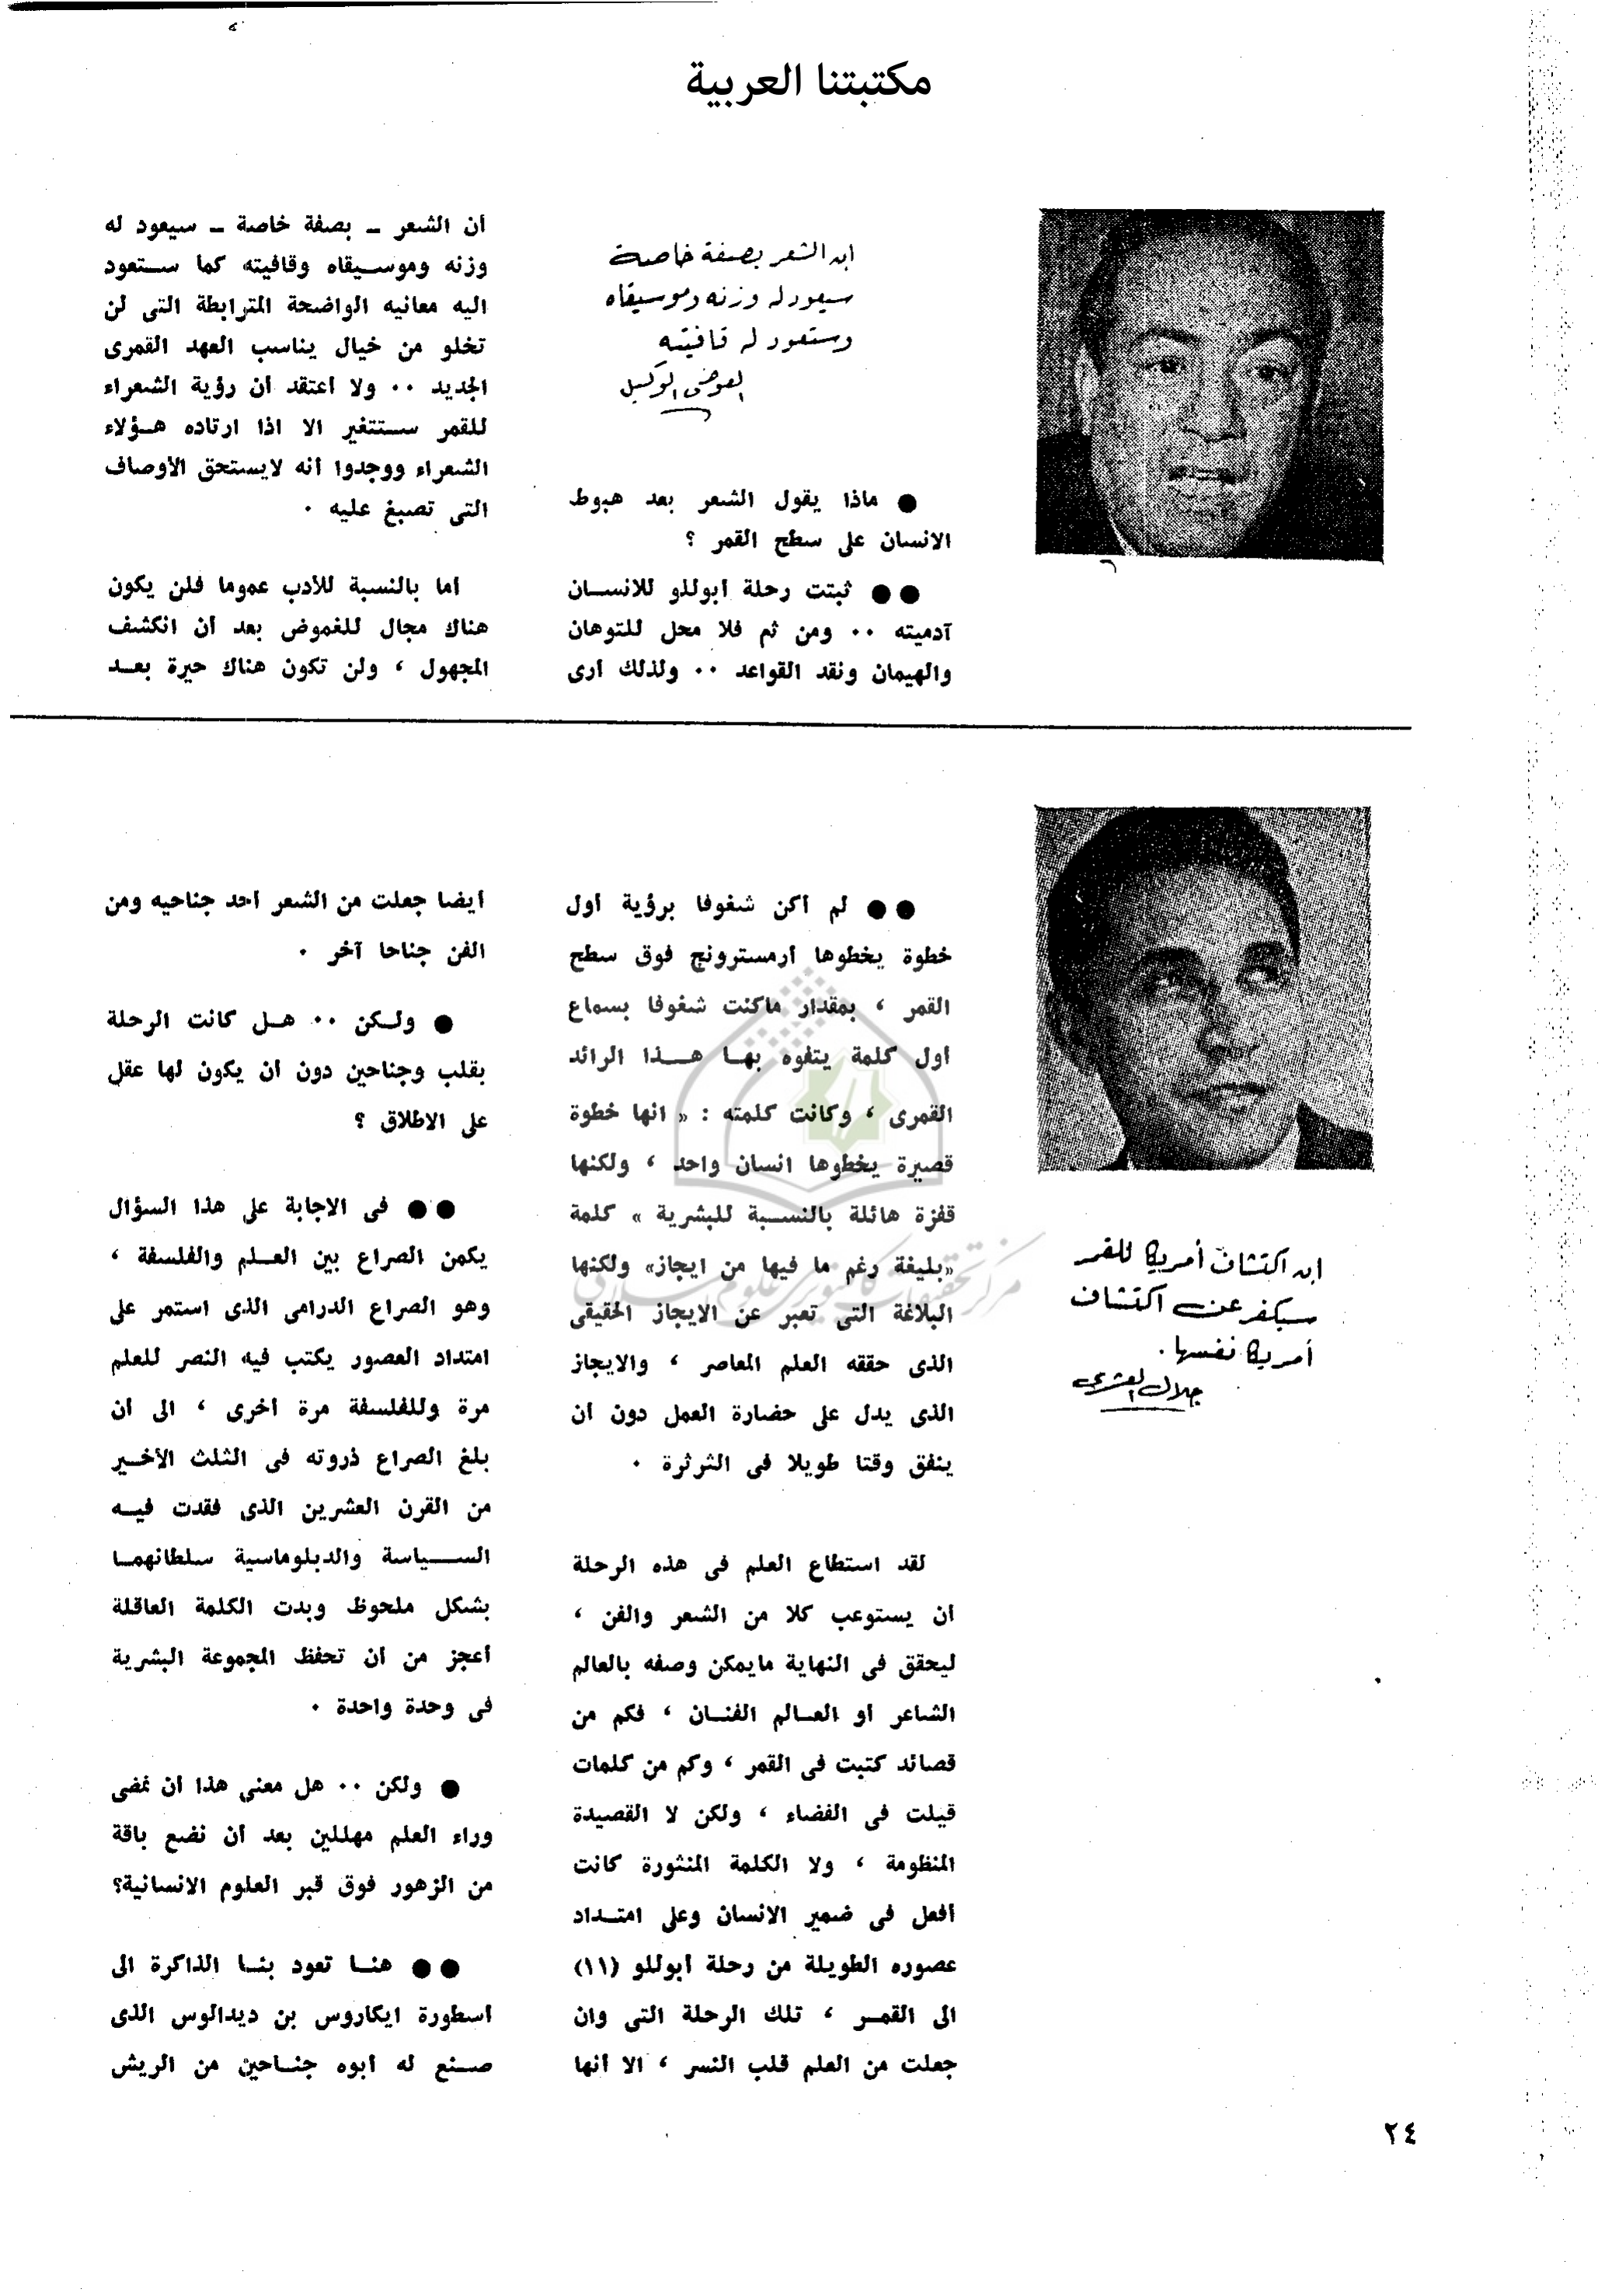 مكتبتنا العربية
ان الشعر بصفة خاصة
سيعود له وزنه وموسيقاه
وستعود له قافيته
العوضى الوكيل
● ماذا يقول الشعر بعد هبوط
الانسان على سطح القمر ؟
●● ثبتت رحلة أبوللو للانسـان
آدميته ٠٠ ومن ثم فلا محل للتوهان
والهيمان ونقد القواعد ٠٠ ولذلك أرى
أن الشعر ــ بصفة خاصة ــ سيعود له
وزنه وموسـيقاه وقافيته كما ستعود
اليه معانيه الواضحة المترابطة التى لن
تخلو من خيال يناسب العهد القمرى
الجديد ٠٠ ولا أعتقد أن رؤية الشعراء
للقمر ستتغير الا اذا ارتاده هـؤلاء
الشعراء ووجدوا أنه لايستحق الأوصاف
التى تصبغ عليه ٠
أما بالنسبة للأدب عموما فلن يكون
هناك مجال للغموض بعد أن انكشف
المجهول ، ولن تكون هناك حيرة بعـد
ان اكتشاف أمريكا للقمر
سيكفر عن اكتشاف
أمريكا نفسها.
جلال العشرى
●● لم أكن شغوفا برؤية أول
خطوة يخطوها أرمسترونج فوق سطح
القمر ، بمقدار ماكنت شغوفا بسماع
أول كلمة يتفوه بهـا هـــذا الرائد
القمرى ، وكانت كلمته : « انها خطوة
قصيرة يخطوها انسان واحد ، ولكنها
قفزة هائلة بالنسـبة للبشرية » كلمة
«بليغة رغم ما فيها من ايجاز» ولكنها
البلاغة التى تعبر عن الايجاز الحقيقى
الذى حققه العلم المعاصر ، والايجاز
الذى يدل على حضارة العمل دون أن
ينفق وقتا طويلا فى الثرثرة ٠
لقد استطاع العلم فى هذه الرحلة
أن يستوعب كلا من الشعر والفن ،
ليحقق فى النهاية مايمكن وصفه بالعالم
الشاعر أو العـالم الفنـان ، فكم من
قصائد كتبت فى القمر ، وكم من كلمات
قيلت فى الفضاء ، ولكن لا القصيدة
المنظومة ، ولا الكلمة المنثورة كانت
أفعل فى ضمير الانسان وعلى امتـداد
عصوره الطويلة من رحلة أبوللو (١١)
الى القمـر ، تلك الرحلة التى وان
جعلت من العلم قلب النسر ، الا أنها
أيضا جعلت من الشعر أحد جناحيه ومن
الفن جناحا آخر ٠
● ولـكن ٠٠ هـل كانت الرحلة
بقلب وجناحين دون أن يكون لها عقل
على الاطلاق ؟
●● فى الاجابة على هذا السؤال
يكمن الصراع بين العـلم والفلسفة ،
وهو الصراع الدرامى الذى استمر على
امتداد العصور يكتب فيه النصر للعلم
مرة وللفلسفة مرة أخرى ، الى أن
بلغ الصراع ذروته فى الثلث الأخـير
من القرن العشرين الذى فقدت فيـه
السـياسة والدبلوماسية سلطانهمـا
بشكل ملحوظ وبدت الكلمة العاقلة
أعجز من أن تحفظ المجموعة البشرية
فى وحدة واحدة ٠
● ولكن ٠٠ هل معنى هذا أن نمضى
وراء العلم مهللين بعد أن نضع باقة
من الزهور فوق قبر العلوم الانسانية؟
●● هنـا تعود بنـا الذاكرة الى
أسطورة ايكاروس بن ديدالوس الذى
صـنع له أبوه جنـاحين من الريش
مركز تحقيقات كامپيوترى علوم اسلامى
٢٤